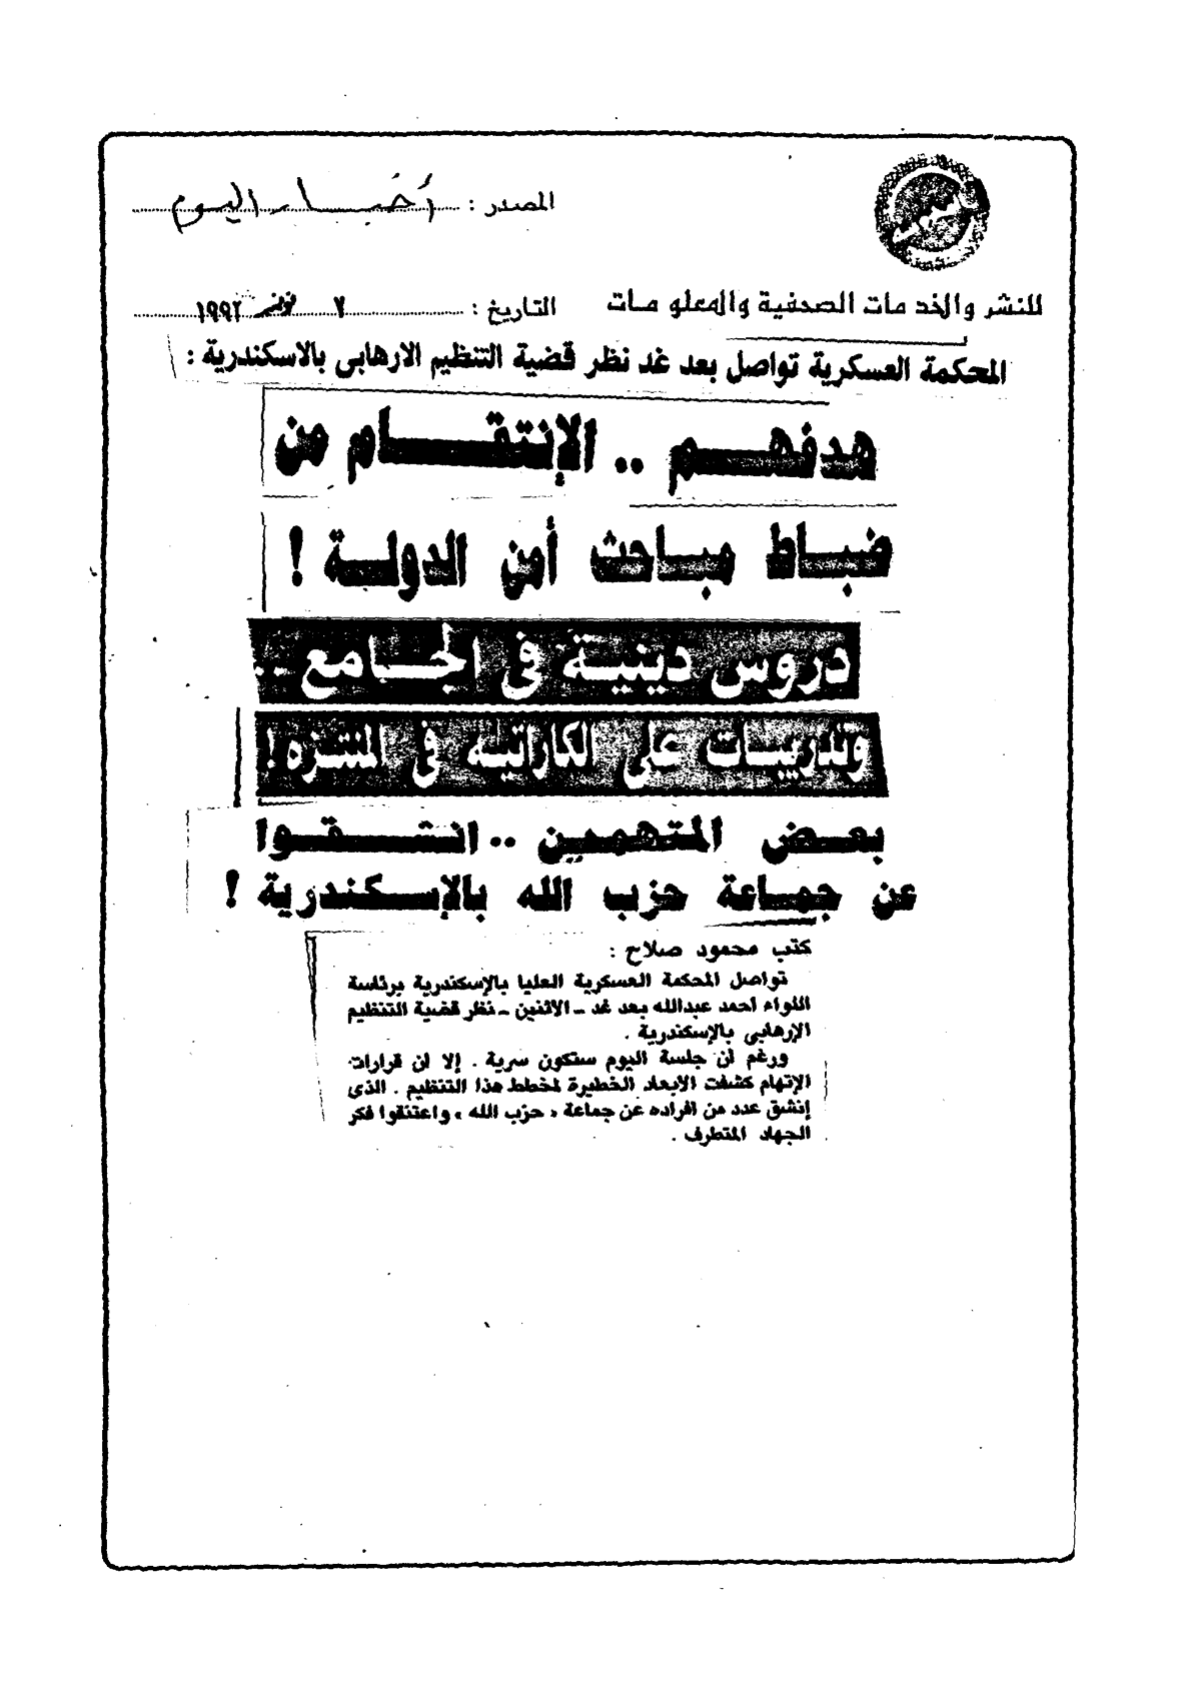 المصدر : أخبار اليوم
للنشر والخدمات الصحفية والمعلومات
التاريخ : ٧ نوفمبر ١٩٩٢
المحكمة العسكرية تواصل بعد غد نظر قضية التنظيم الارهابى بالاسكندرية :
هدفهم .. الإنتقام من
ضباط مباحث أمن الدولة !
دروس دينية فى الجامع ..
وتدريبات على الكاراتيه فى المنتزه !
بعض المتهمين .. انشقوا
عن جماعة حزب الله بالإسكندرية !
كتب محمود صلاح :
تواصل المحكمة العسكرية العليا بالإسكندرية برئاسة
اللواء احمد عبدالله بعد غد - الاثنين - نظر قضية التنظيم
الإرهابي بالإسكندرية .
ورغم ان جلسة اليوم ستكون سرية . إلا ان قرارات
الإتهام كشفت الابعاد الخطيرة لمخطط هذا التنظيم . الذى
إنشق عدد من افراده عن جماعة « حزب الله » واعتنقوا فكر
الجهاد المتطرف .